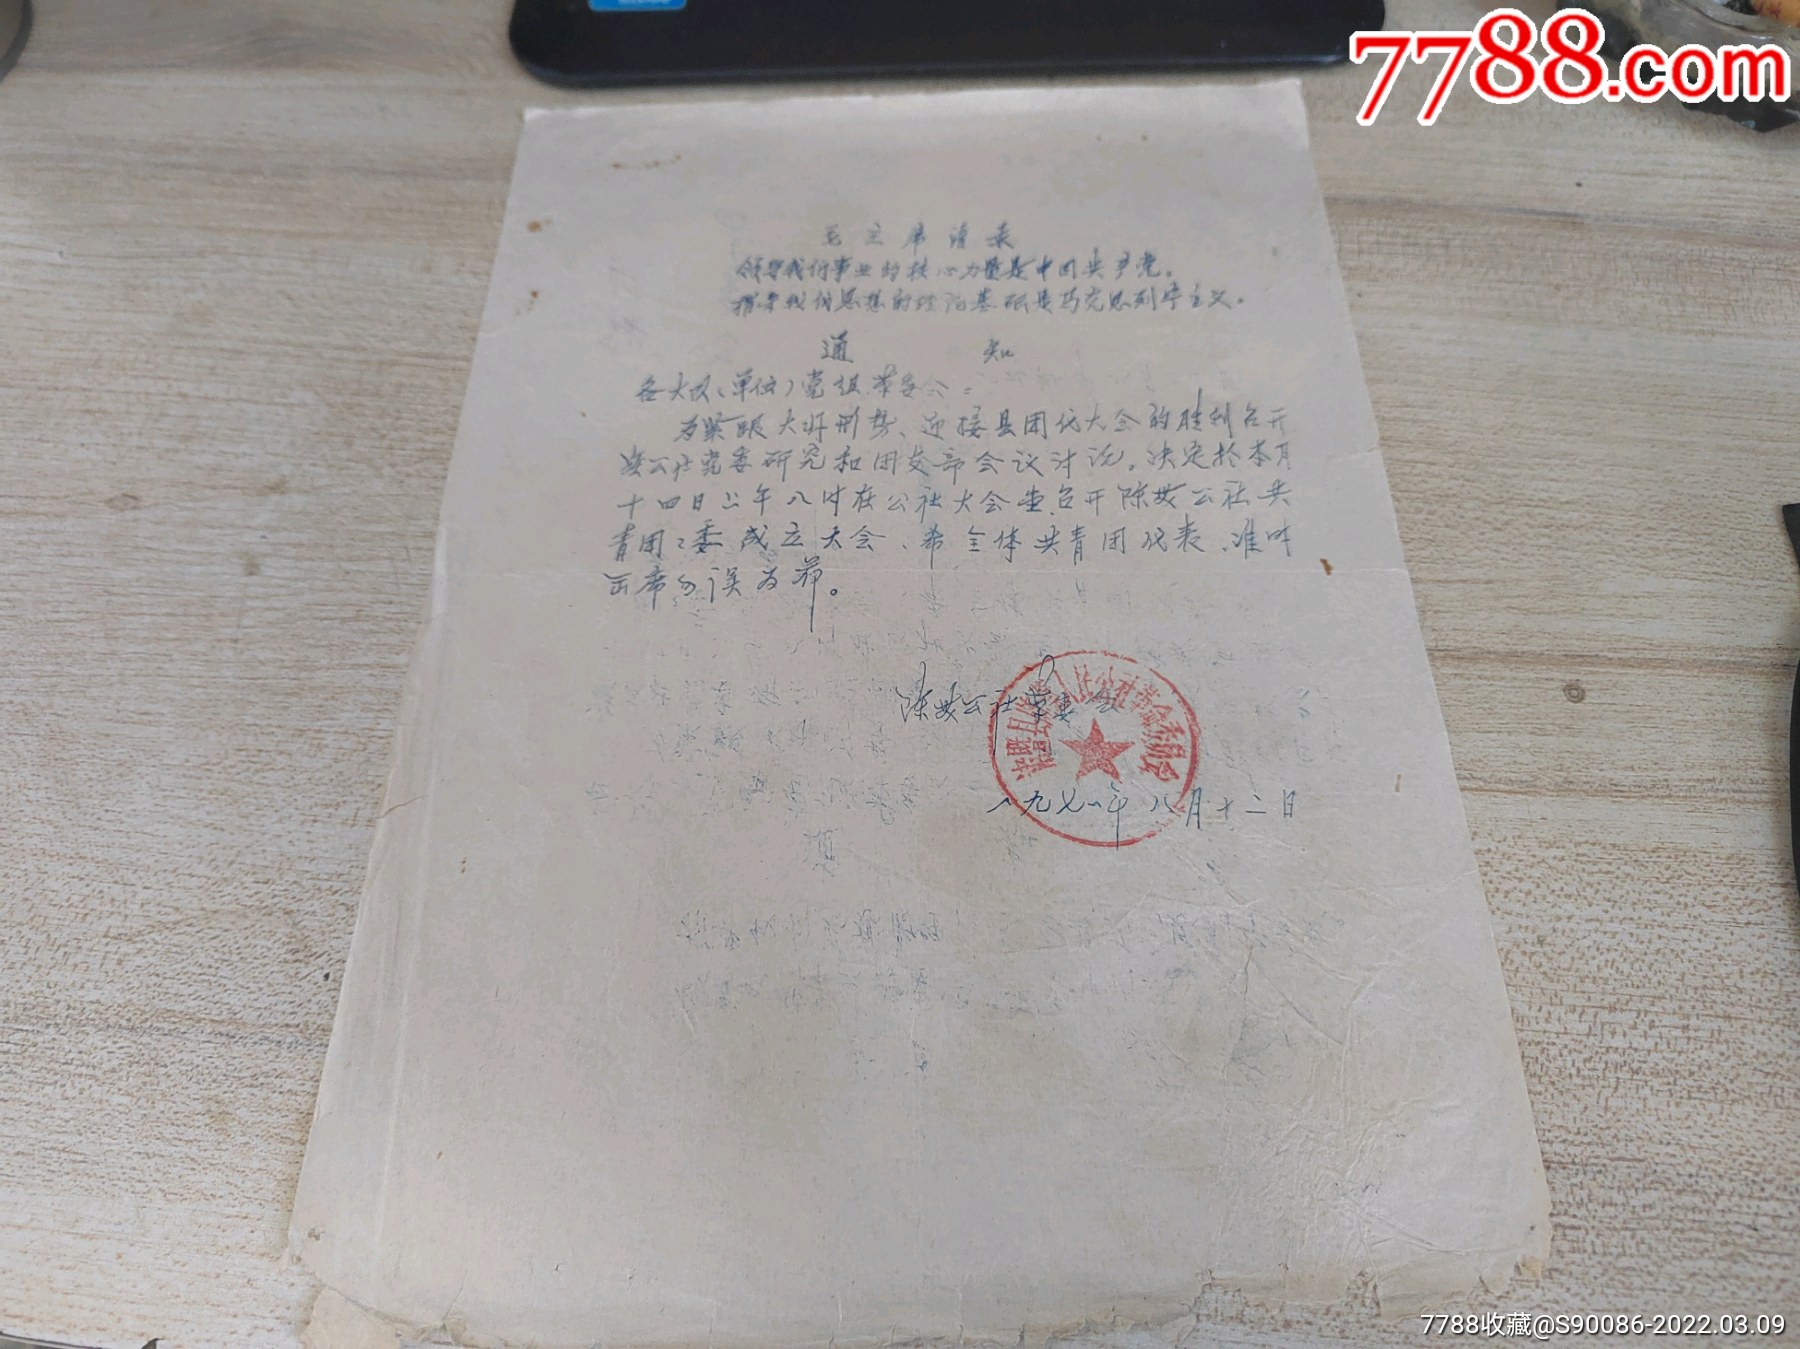 7788.com
毛主席语录
领导我们事业的核心力量是中国共产党。
指导我们思想的理论基础是马克思列宁主义。
通 知
各大队(单位)党组、革委会：
为紧跟大好形势、迎接县团代大会的胜利召开
公社党委研究和团支部会议讨论。决定於本月
十四日上午八时在公社大会堂召开陈 公社共
青团工委成立大会、希全体共青团代表、准时
出席勿误为荷。
陈 公社党委会
人民公社革命委员会
一九七一年八月十二日
7788收藏@S90086-2022.03.09